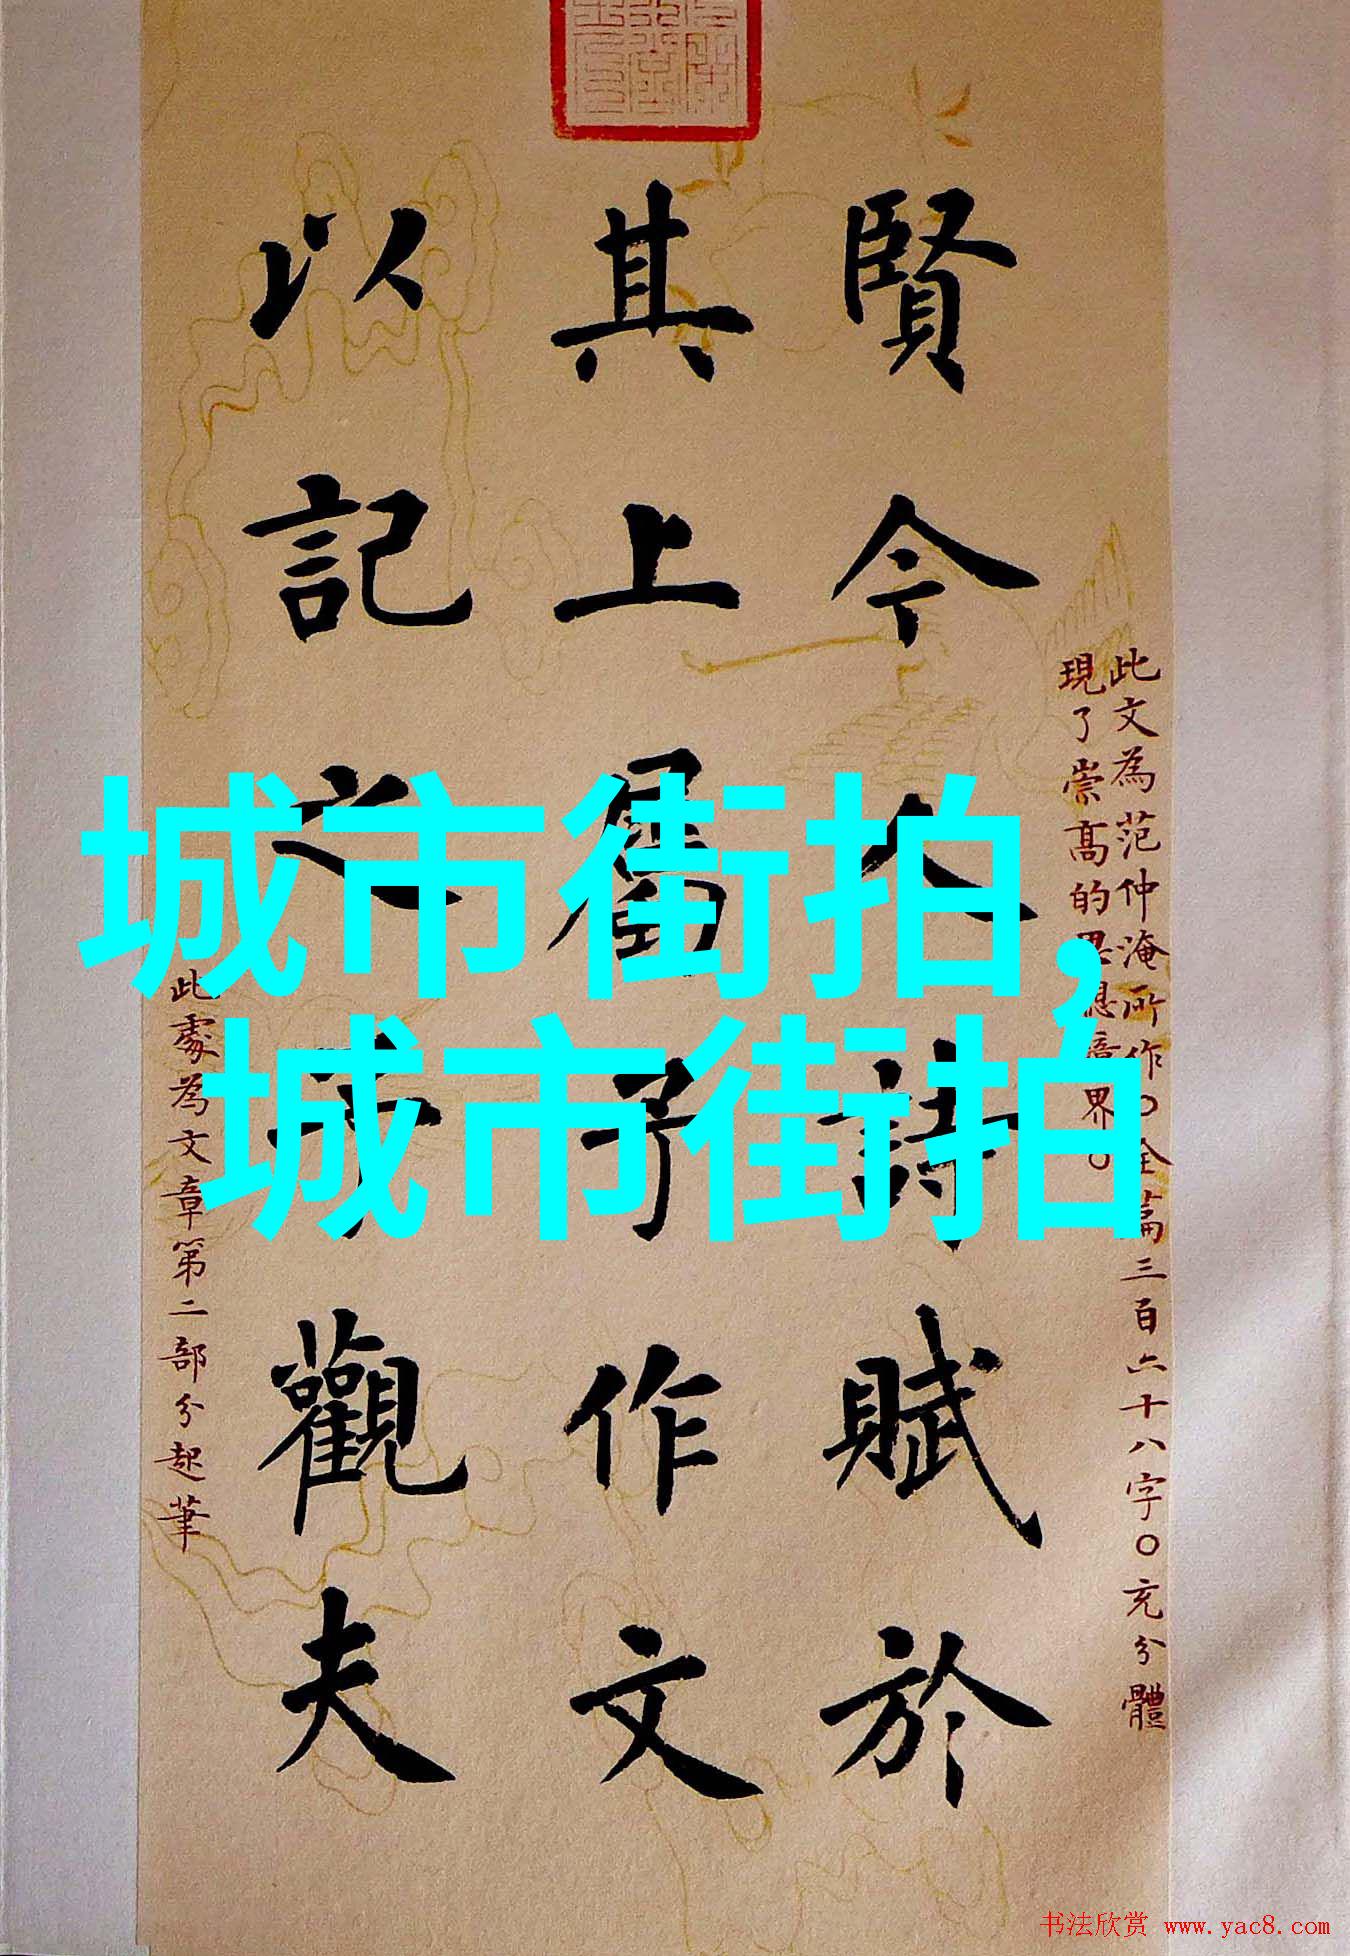 城市街拍,
城市街拍
此文為范仲淹所作〇全篇三百六十八字〇充分體
現了崇高的思想境界〇
賢今人詩賦於
其上屬予作文
以記之予觀夫
此處為文章第二部分起筆
书法欣赏 www.yac8.com